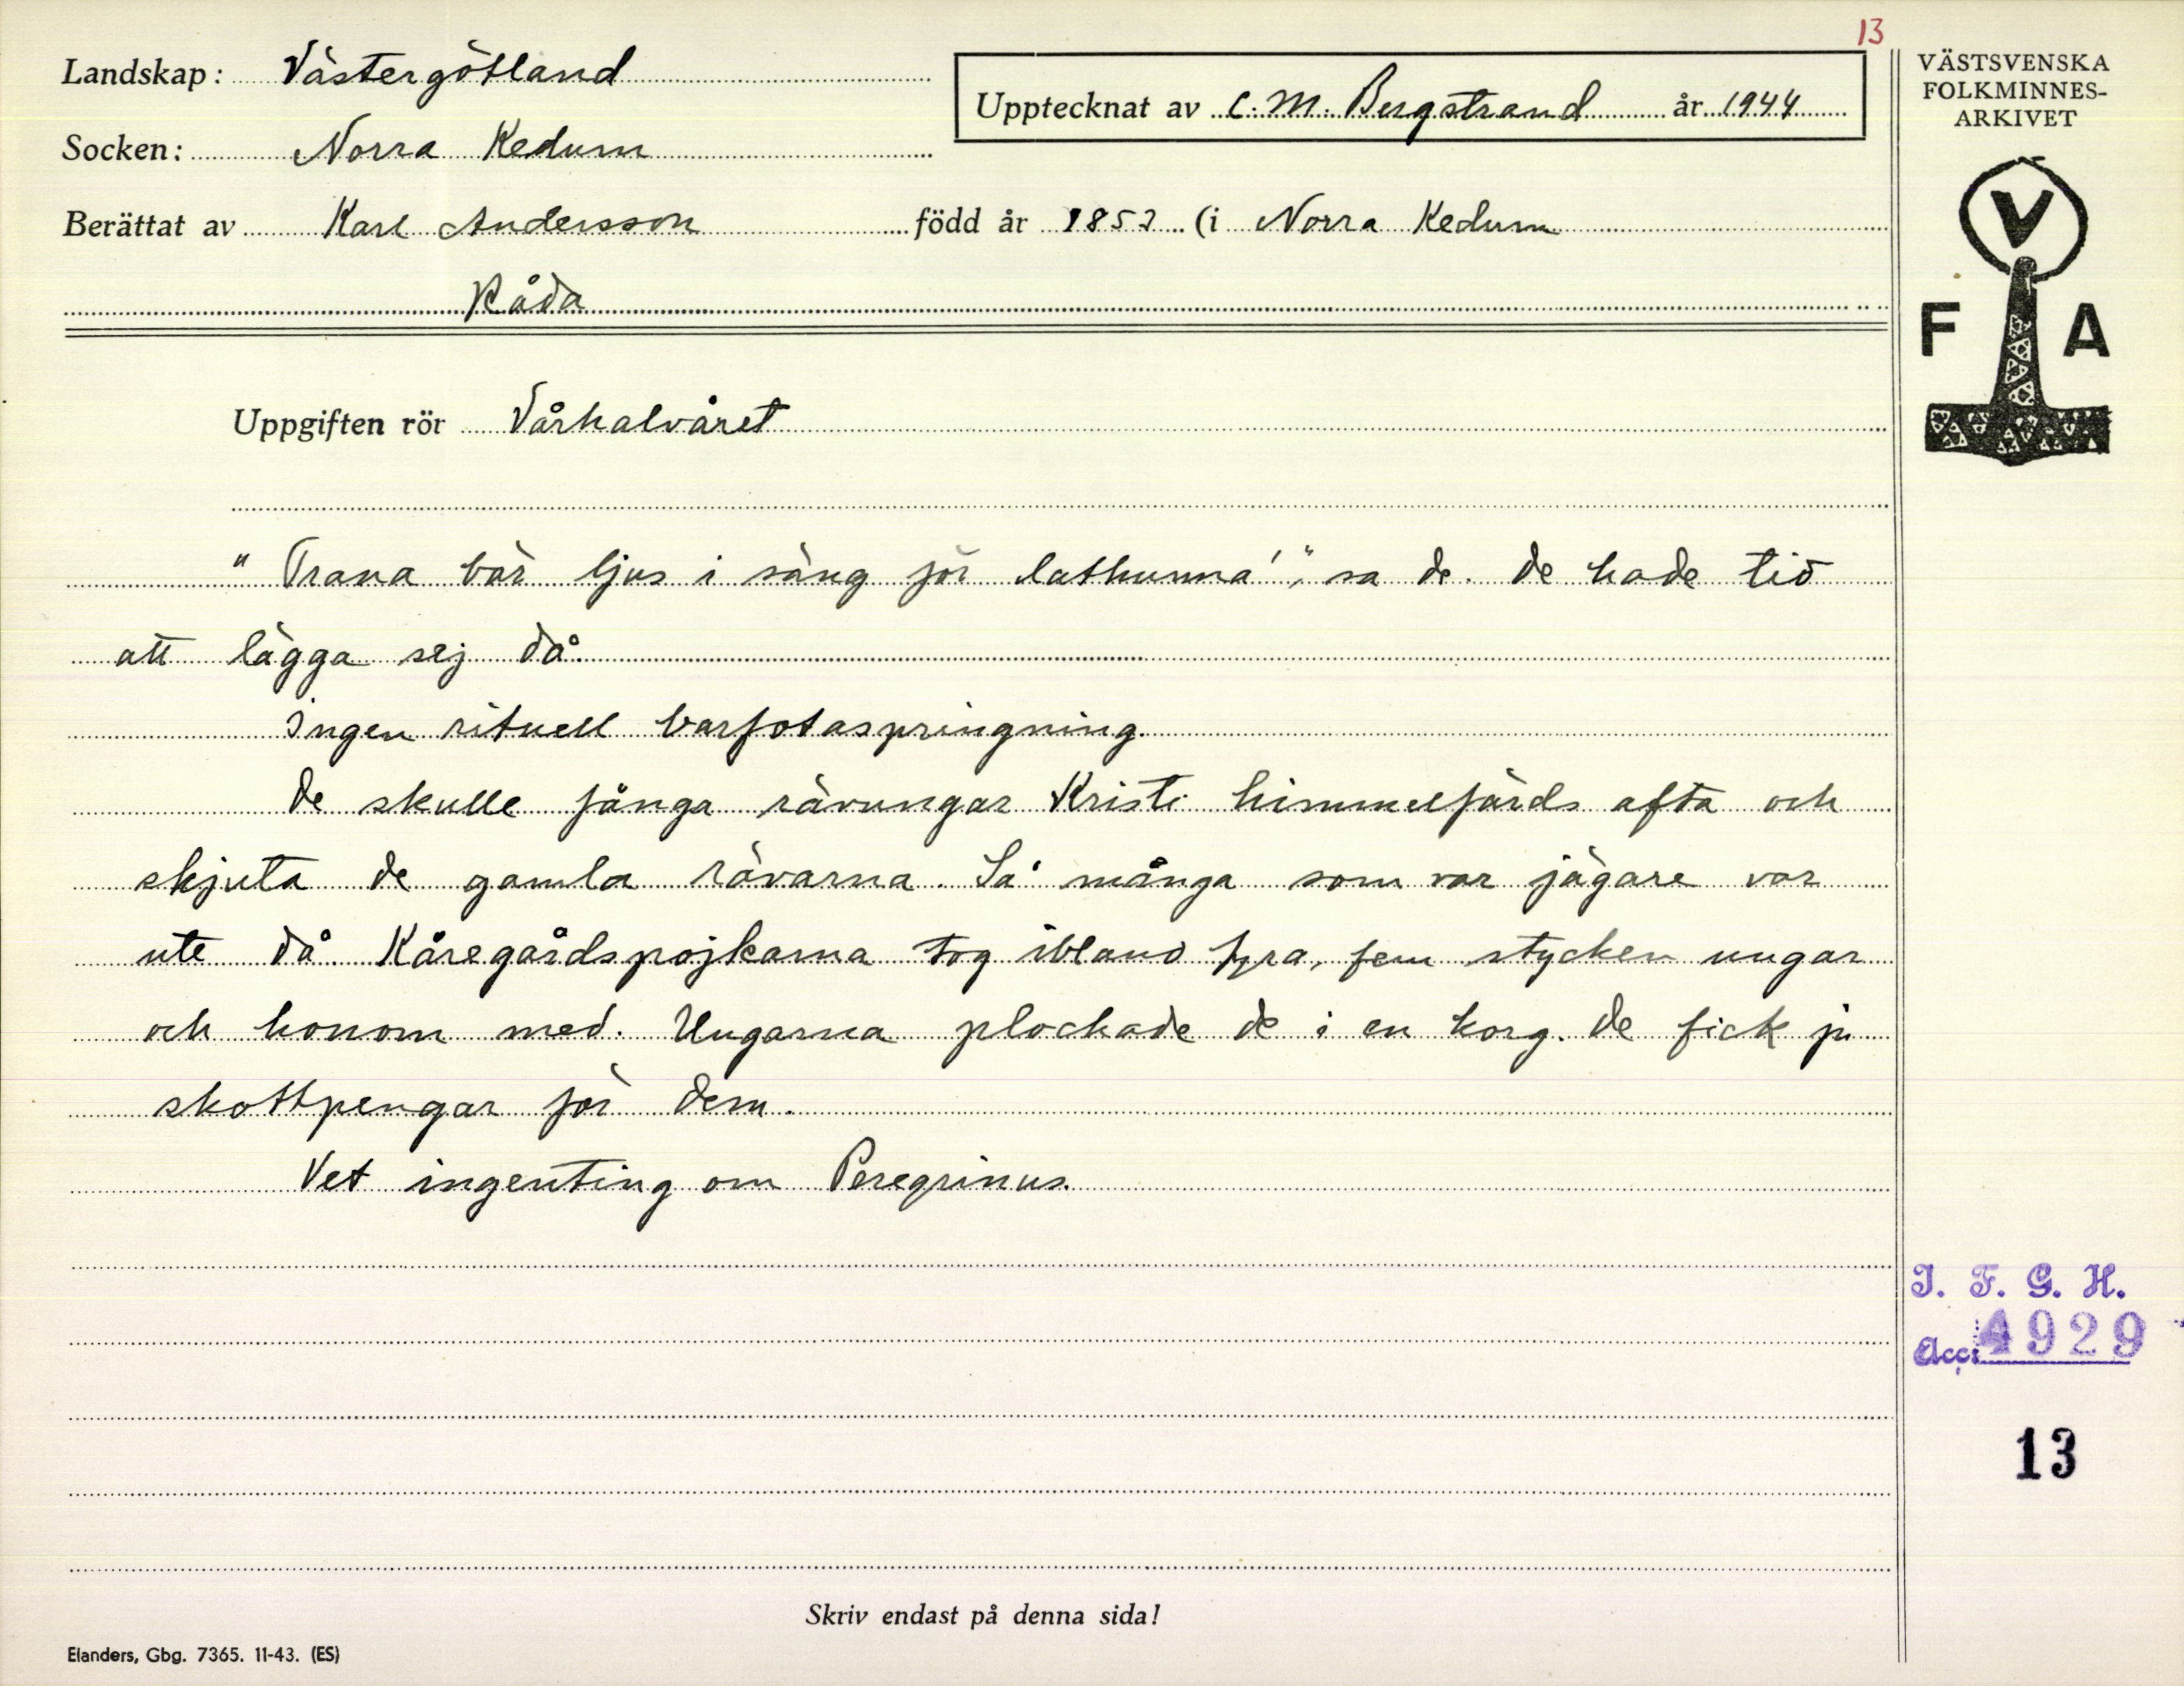 13
Landskap: Västergötland
Upptecknat av C. M. Bergstrand år 1944
Socken: Norra Kedum
Berättat av Karl Andersson född år 1852 (i Norra Kedum
Råda
VÄSTSVENSKA
FOLKMINNES-
ARKIVET
V
F A
Uppgiften rör Vårhalvåret
" Trana bär ljus i säng för lathunna'", sa de. De hade tid
att lägga sej då.
Ingen rituell barfotaspringning.
De skulle fånga rävungar Kristi himmelfärds afta och
skjuta de gamla rävarna. Så många som var jägare var
ute då. Kåregårdspojkarna tog ibland fyra, fem stycken ungar
och honom med. Ungarna plockade de i en korg. De fick ju
skottpengar för dem.
Vet ingenting om Peregrinus.
I. F. G. H.
Acc. 4929
13
Skriv endast på denna sida!
Elanders, Gbg. 7365. 11-43. (ES)